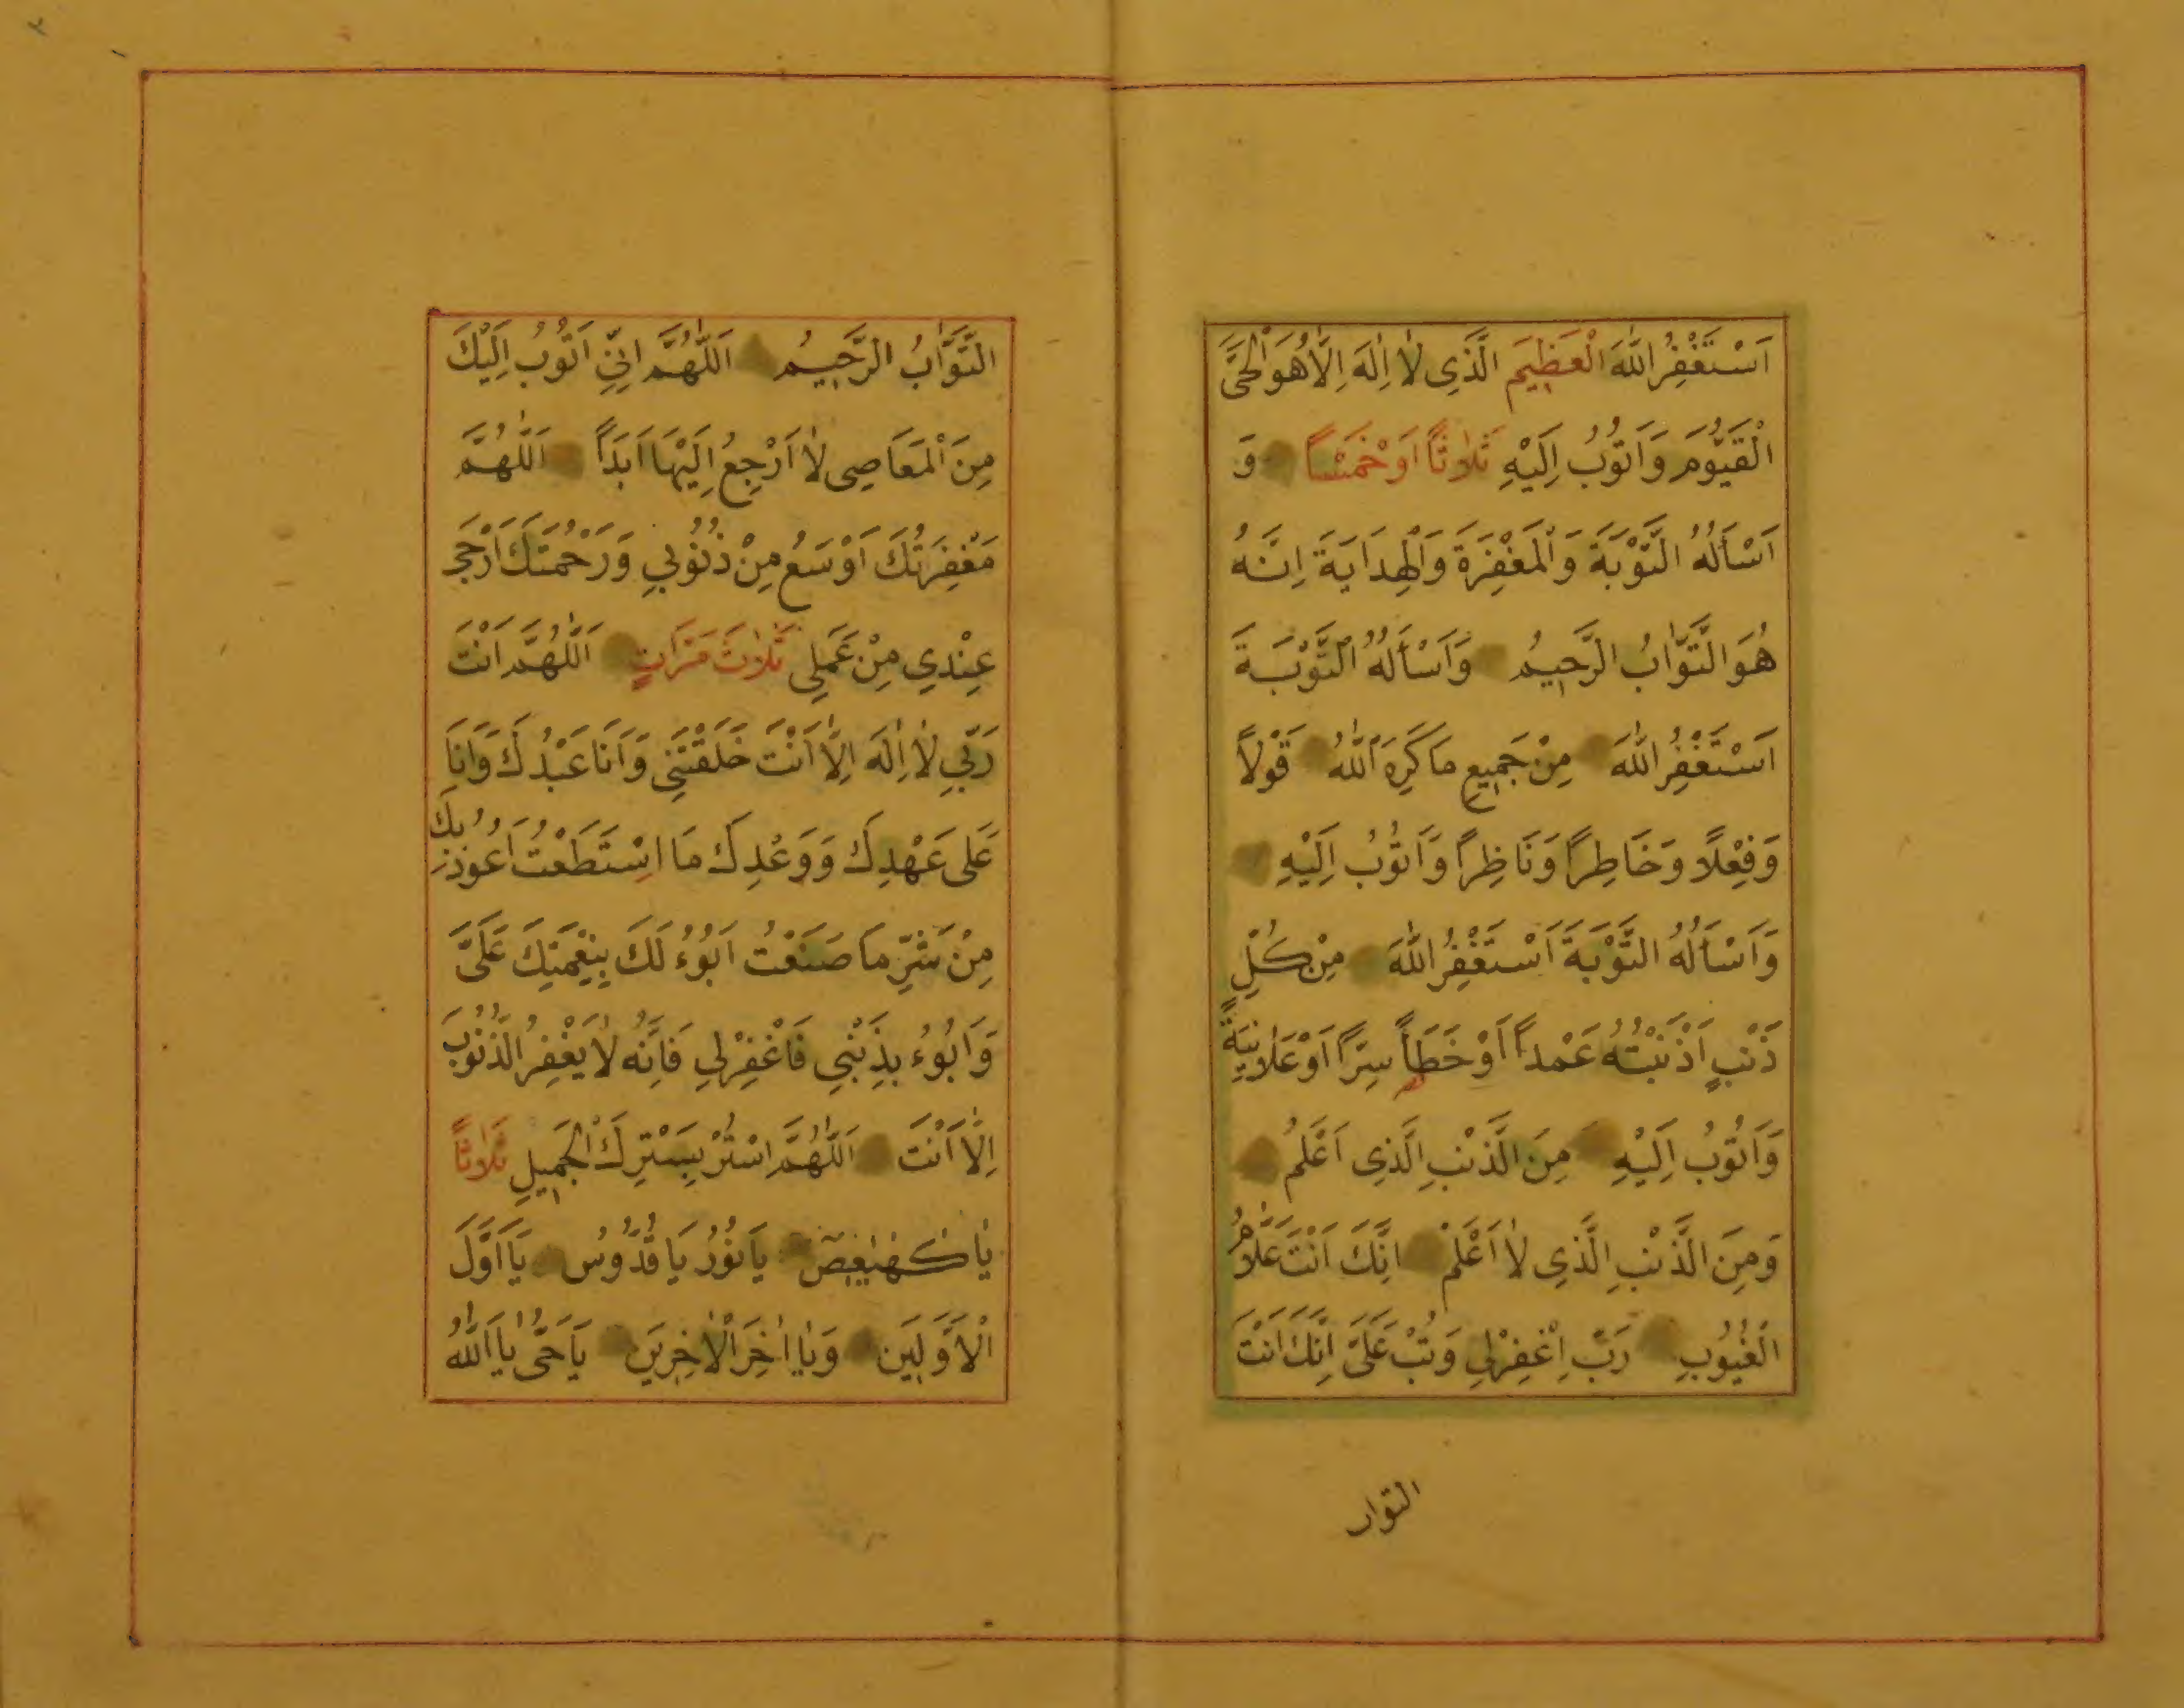 اَسْتَغْفِرُ اللّٰهَ الْعَظِيمَ الَّذِى لاٰ اِلٰهَ اِلاَّ هُوَ الْحَىَّ
الْقَيُّومَ وَاَتُوبُ اِلَيْهِ ثَلاٰثاً اَوْ خَمْساً وَ
اَسْاَلُهُ التَّوْبَةَ وَالْمَغْفِرَةَ وَالْهِدَايَةَ اِنَّهُ
هُوَ التَّوَّابُ الرَّحِيمُ وَاَسْاَلُهُ التَّوْبَةَ
اَسْتَغْفِرُ اللّٰهَ مِنْ جَمِيعِ مَا كَرِهَ اللّٰهُ قَوْلاً
وَفِعْلاً وَخَاطِراً وَنَاظِراً وَاَتُوبُ اِلَيْهِ
وَاَسْاَلُهُ التَّوْبَةَ اَسْتَغْفِرُ اللّٰهَ مِنْ كُلِّ
ذَنْبٍ اَذْنَبْتُهُ عَمْداً اَوْ خَطَأً سِرّاً اَوْ عَلاٰنِيَةً
وَاَتُوبُ اِلَيْهِ مِنَ الَّذنْبِ الَّذِى اَعْلَمُ
وَمِنَ الَّذنْبِ الَّذِى لاٰ اَعْلَمُ اِنَّكَ اَنْتَ عَلاَّمُ
الْغُيُوبِ رَبِّ اِغْفِرْلِى وَتُبْ عَلَىَّ اِنَّكَ اَنْتَ
التوا
التَّوَّابُ الرَّحِيمُ اَللّٰهُمَّ اِنِّى اَتُوبُ اِلَيْكَ
مِنَ الْمَعَاصِى لاٰ اَرْجِعُ اِلَيْهَا اَبَداً اَللّٰهُمَّ
مَغْفِرَتُكَ اَوْسَعُ مِنْ ذُنُوبِي وَرَحْمَتُكَ اَرْجَى
عِنْدِي مِنْ عَمَلِي ثَلاٰثَ مَرَاتٍ اَللّٰهُمَّ اَنْتَ
رَبِّي لاٰ اِلٰهَ اِلاَّ اَنْتَ خَلَقْتَنِى وَاَنَا عَبْدُكَ وَاَنَا
عَلٰى عَهْدِكَ وَوَعْدِكَ مَا اسْتَطَعْتُ اَعُوذُ بِكَ
مِنْ شَرِّ مَا صَنَعْتُ اَبُوءُ لَكَ بِنِعْمَتِكَ عَلَىَّ
وَاَبُوءُ بِذَنْبِي فَاغْفِرْلِي فَاِنَّهُ لاٰ يَغْفِرُ الذُّنُوبَ
اِلاَّ اَنْتَ اَللّٰهُمَّ اسْتُرْ بِسَتْرِكَ الْجَمِيلِ ثَلاٰثاً
يٰا كٰهٰيٰعٓصٓ يَا نُورُ يَا قُدُّوسُ يَا اَوَّلَ
الْاَوَّلِينَ وَيٰا اٰخِرَ الْاٰخِرِينَ يَا حَىُّ يٰا اَللّٰهُ